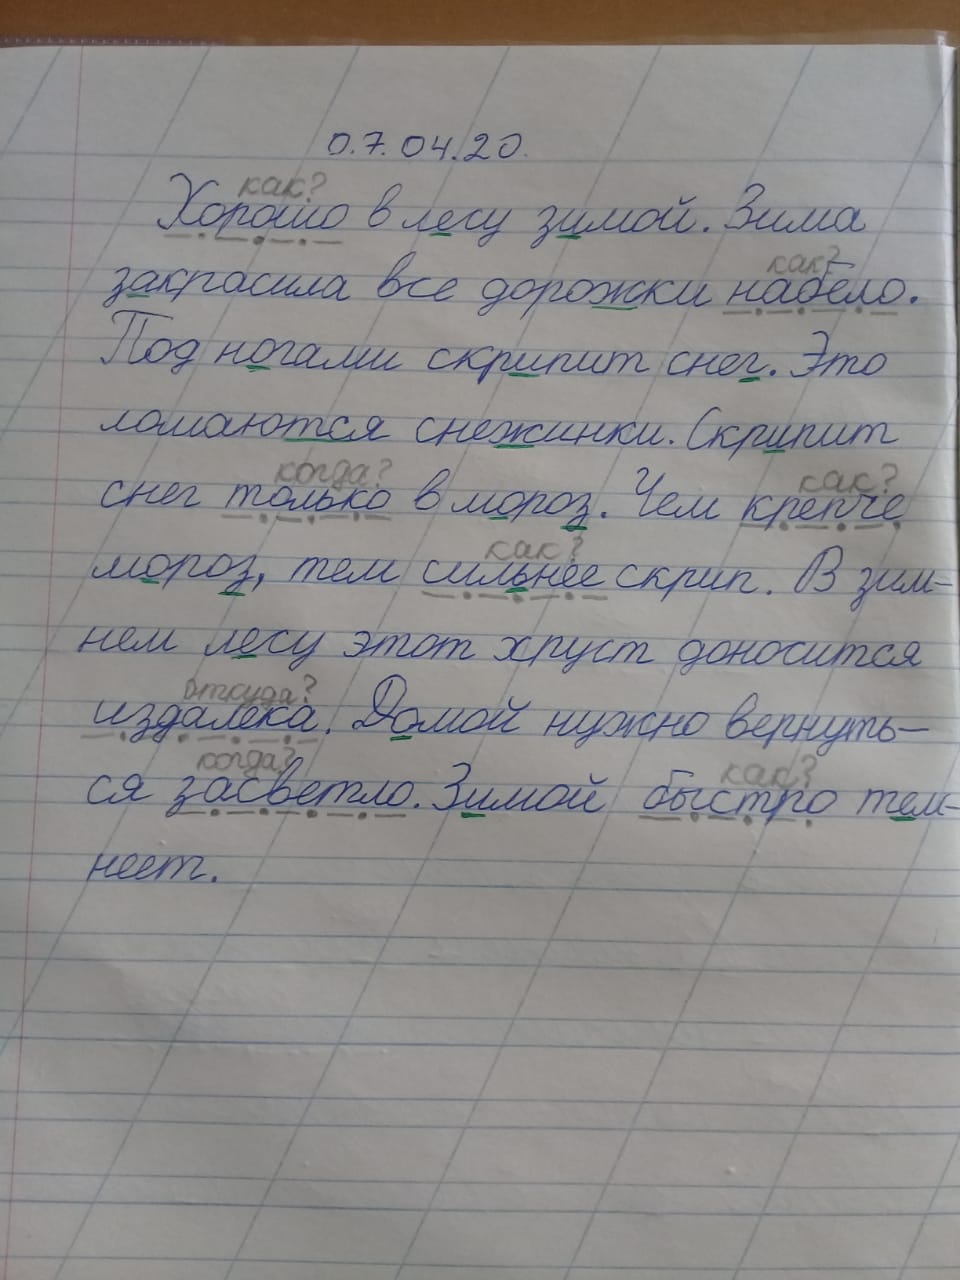 0.7.04.20.
как?
Хорошо в лесу зимой. Зима
как?
закрасила все дорожки набело.
Под ногами скрипит снег. Это
ломаются снежинки. Скрипит
когда? как?
снег только в мороз. Чем крепче
как?
мороз, тем сильнее скрип. В зим-
нем лесу этот хруст доносится
откуда?
издалека. Домой нужно вернуть-
когда? как?
ся засветло. Зимой быстро тем-
неет.